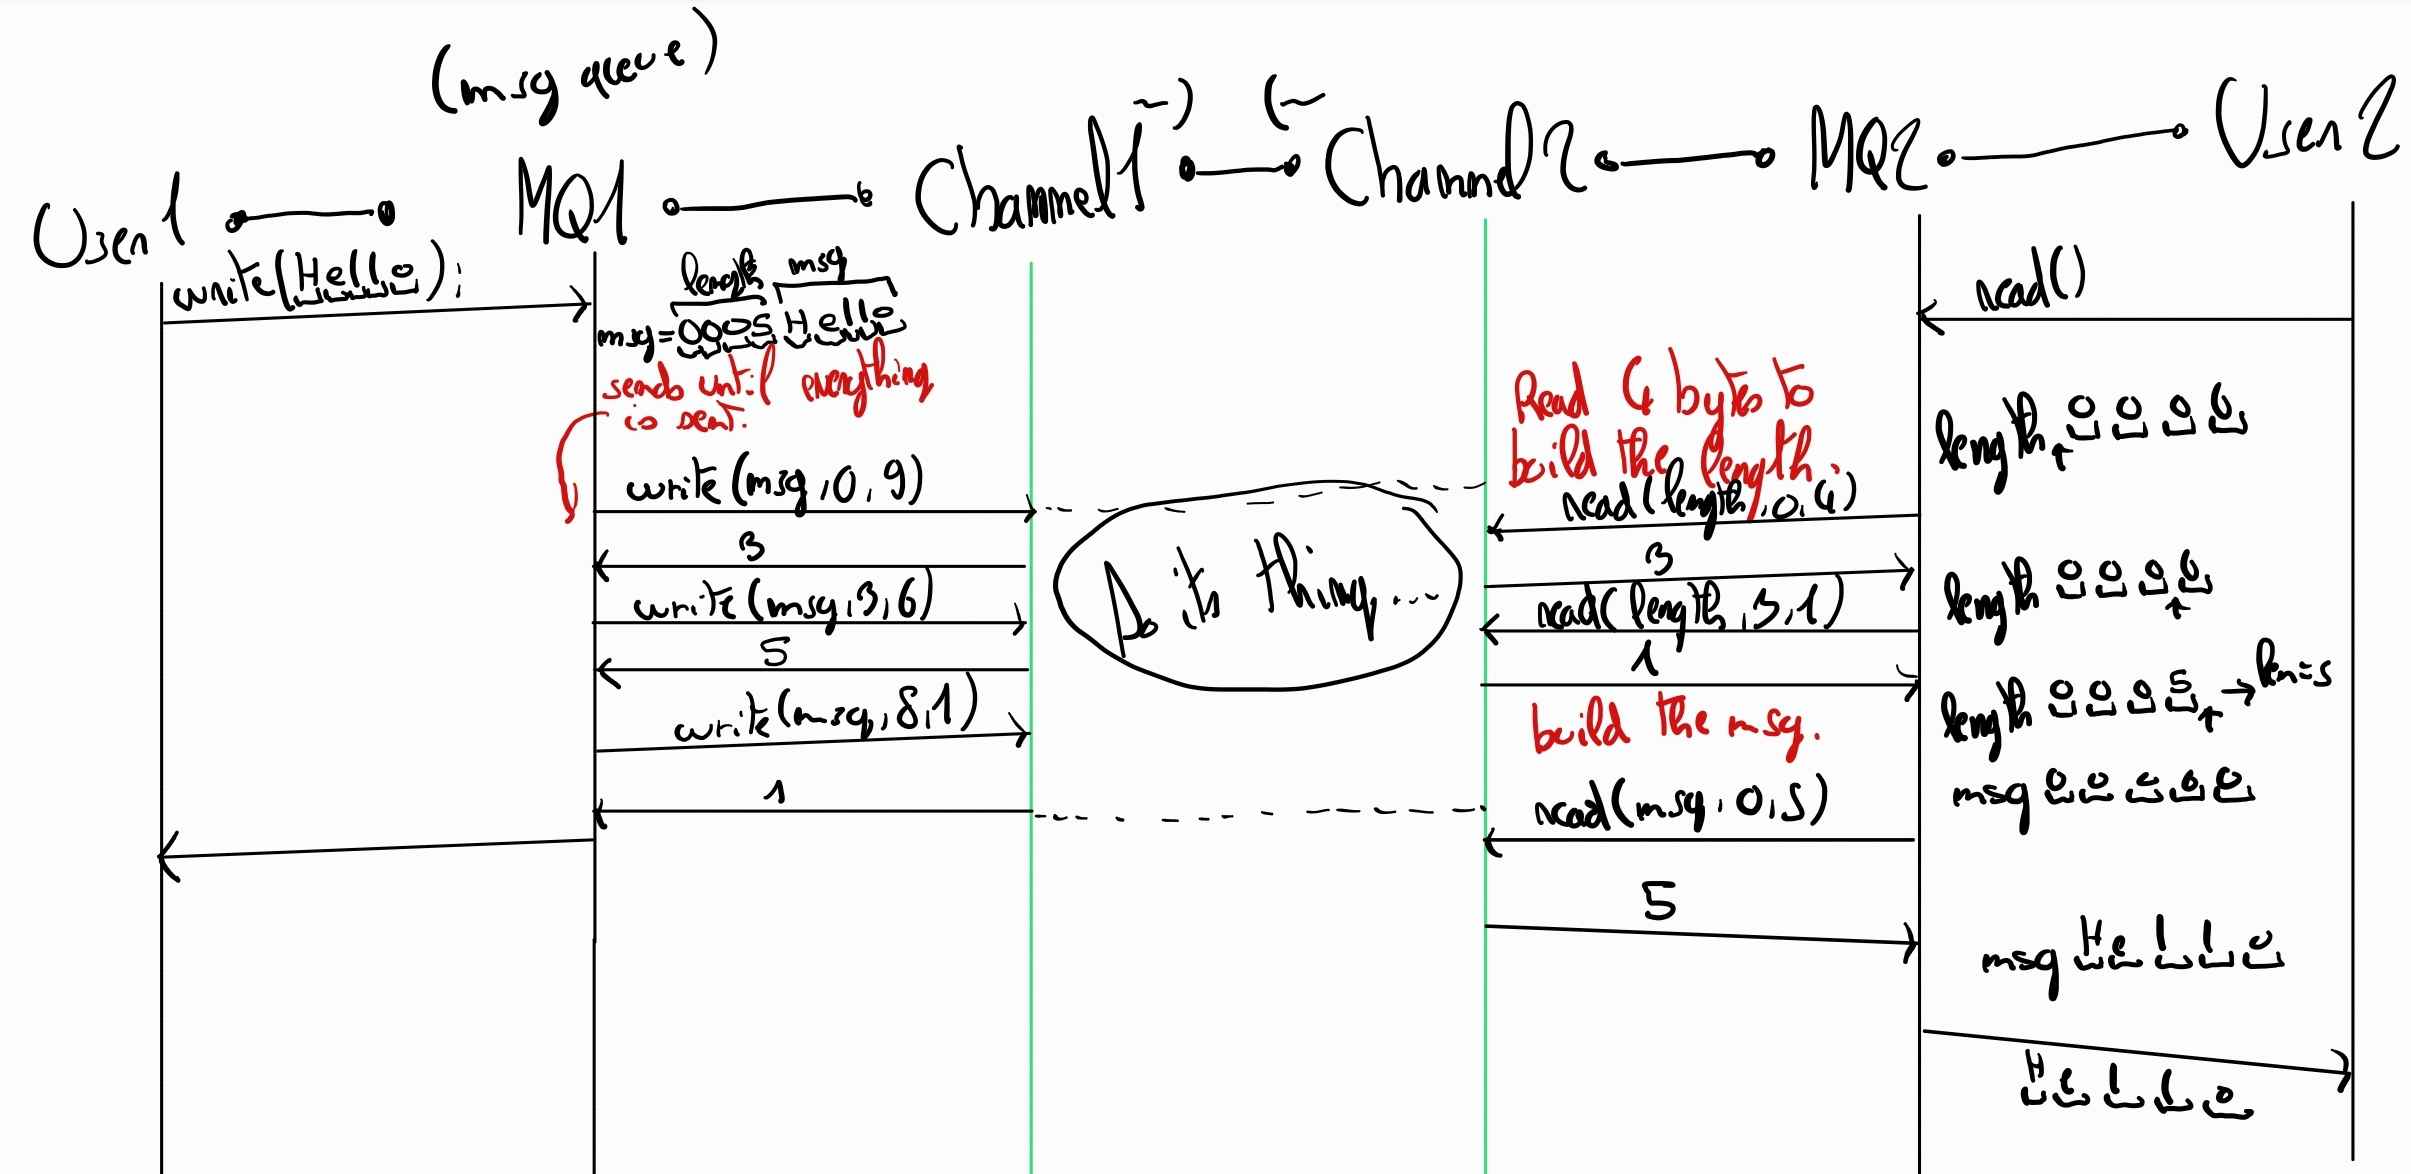 (msg queue)
User 1
MQ1
Channel 1
~) (~
Channel 2
MQ2
User 2
write(Hello);
length msg
msg = 0005 Hello
sends until everything
is sent.
write(msg, 0, 9)
3
write(msg, 3, 6)
5
write(msg, 8, 1)
1
Do its thing...
Read 4 bytes to
build the length.
read(length, 0, 4)
3
read(length, 3, 1)
1
build the msg.
read(msg, 0, 5)
5
read()
length 0 0 0 0
length 0 0 0 0
length 0 0 0 5 → len=5
msg 0 0 0 0 0
msg H e l l o
H e l l o